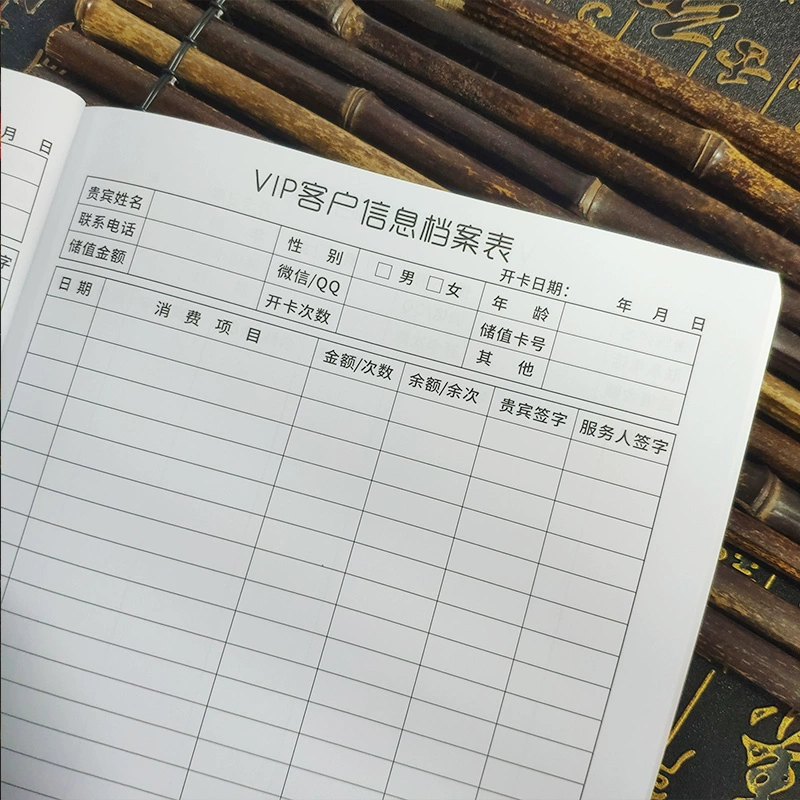 月 日
字
VIP客户信息档案表
开卡日期： 年 月 日
贵宾姓名 性 别 □ 男 □ 女 年 龄
联系电话 微信/QQ 储值卡号
储值金额 开卡次数 其 他
日 期 消 费 项 目 金额/次数 余额/余次 贵宾签字 服务人签字